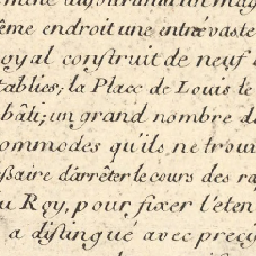 ême endroit une entrée vaste
oyal construit de neuf
tablies; la Place de Louis le
bâti; un grand nombre d
ommodes qu'ils ne trou
ssaire d'arrêter le cours des ra
u Roy, pour fixer l'éten
a distingué avec préç